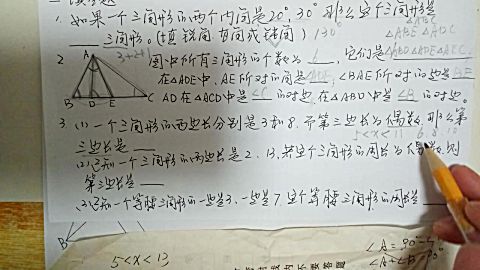 1. 如果一个三角形的两个内角是20°, 30° 那么这个三角形是
____三角形. (填锐角 直角或钝角) 130°
△ABC
△ABE △ADC
2. 图中所有三角形的个数为 6, 它们是 △ABD △ADE △AEC.
3+2+1
在△ADE中, AE所对的角是∠ADE, ∠BAE所对的边是BE
AD在△ACD中是∠C的对边, 在△ABD中是∠B的对边.
A
B D E C
3. (1) 一个三角形的两边长分别是3和8, 而第三边长为偶数, 那么第
三边长是 ____
5<x<11 6, 8, 10
(2) 已知一个三角形的两边长是2, 13, 若这个三角形的周长为偶数, 则
第三边长是 ____
(3) 已知一个等腰三角形的一边是3, 一边是7, 这个等腰三角形的周长是 ____
B
5<x<13
不要答题
∠A=90°-
∠A+∠B=90°